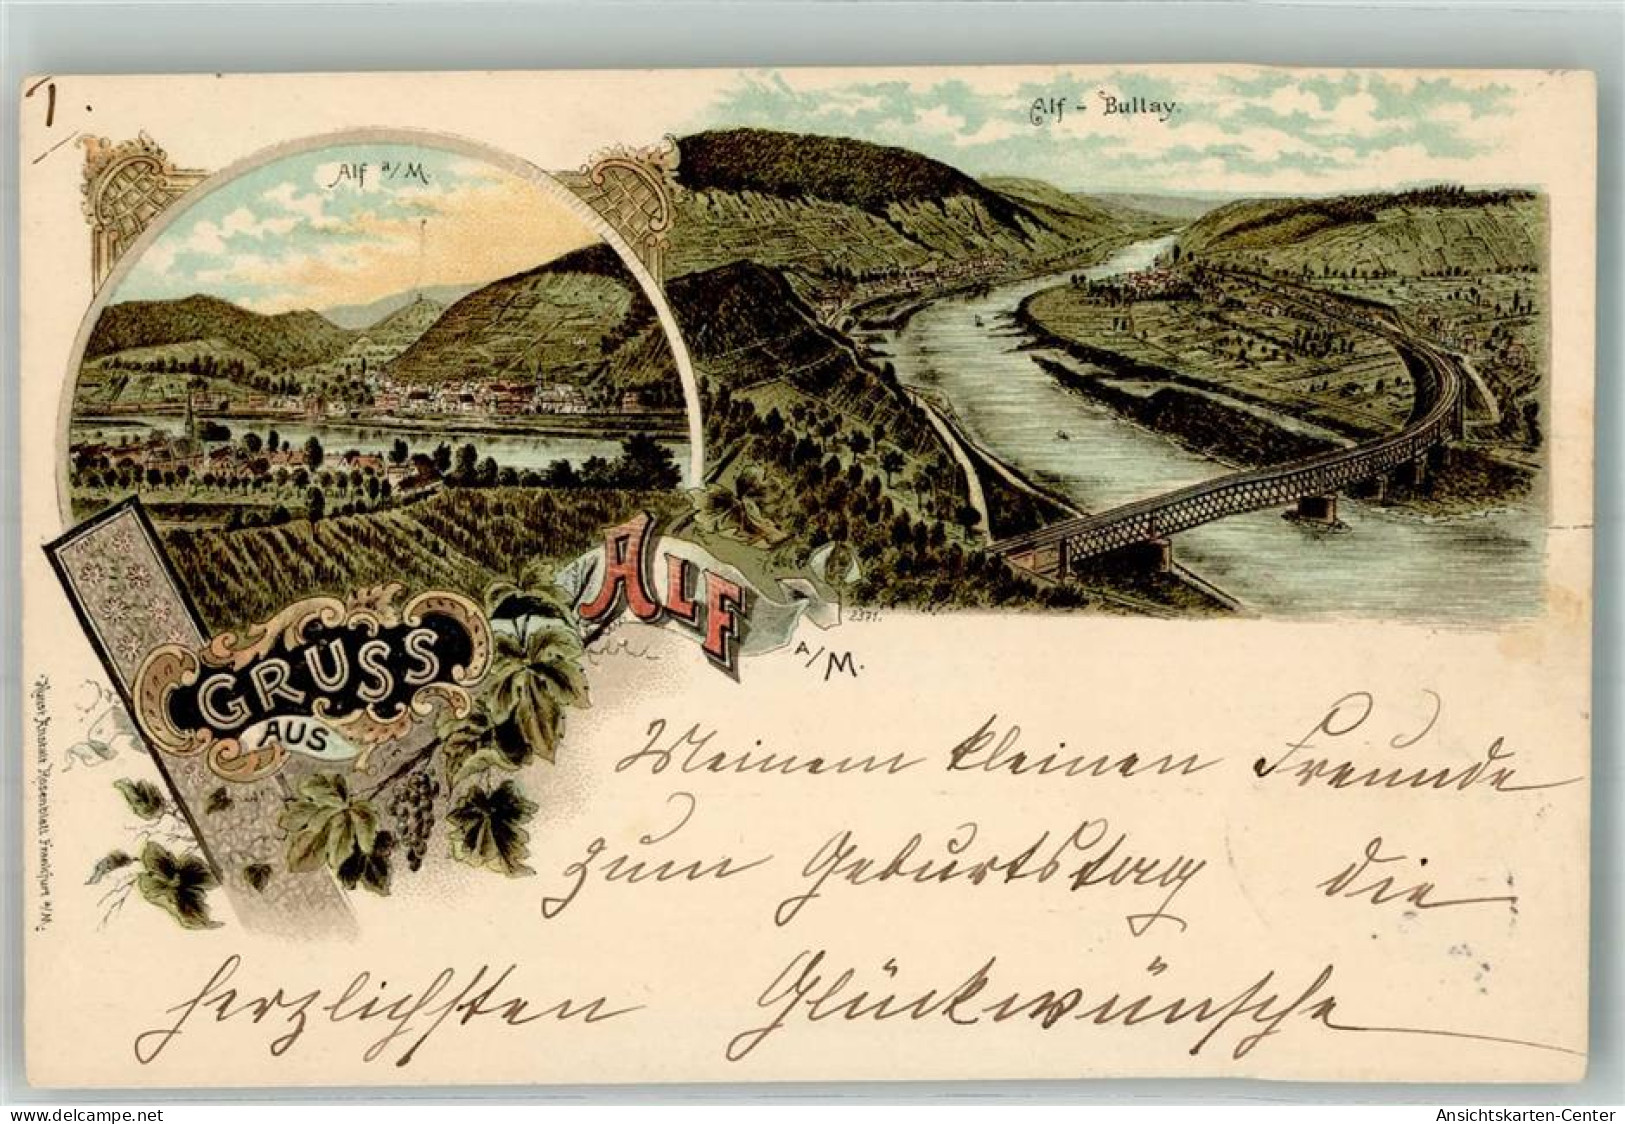 1.
Alf a/M.
Alf - Bullay.
GRUSS
AUS
ALF
A/M.
2371.
Meinem kleinen Freunde
zum Geburtstag die
herzlichsten Glückwünsche
Rosenblatt Frankfurt a/M.
Ansichtskarten-Center